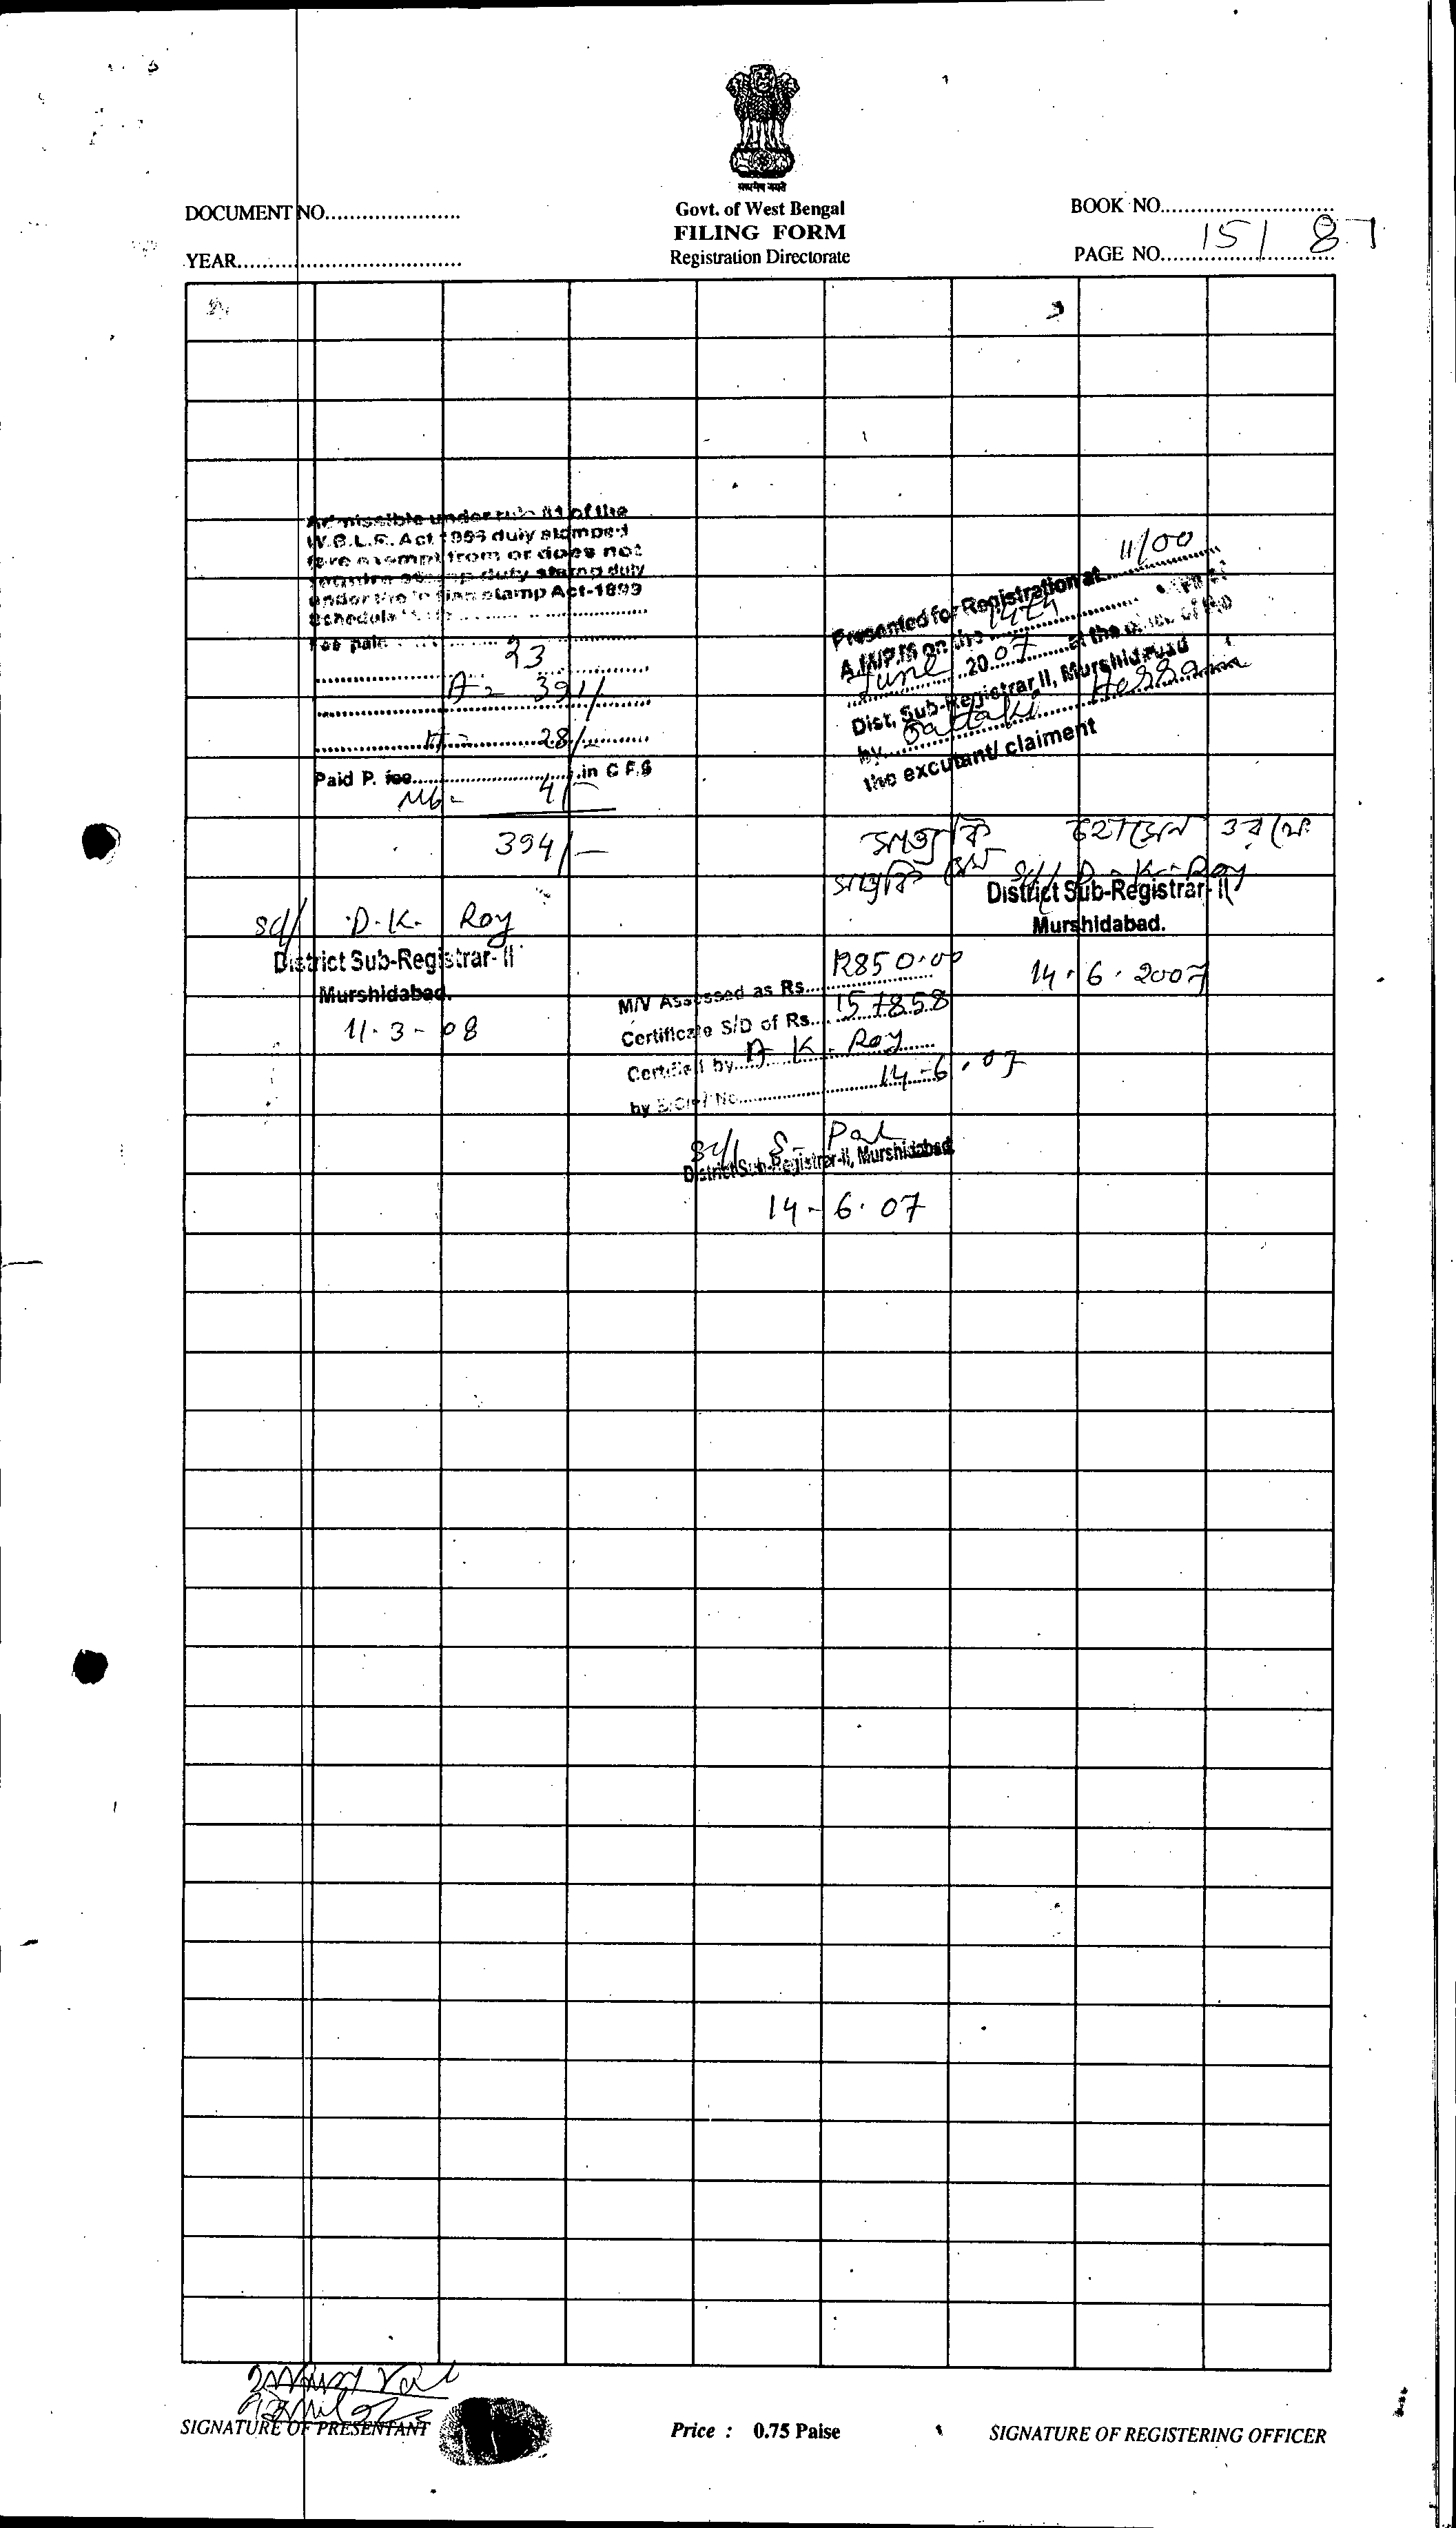 सत्यमेव जयते
DOCUMENT NO......................
Govt. of West Bengal
BOOK NO............................
FILING FORM
YEAR....................................
Registration Directorate
PAGE NO............................ 15/ 87
Admissible under rule of the
W.B.L.R. Act duly stamped
exempt from or does not
require duty stamp duty
under the stamp Act-1899
Schedule
Fee paid
23
A = 391/
28/-
Paid P. fee............................in C F.S
4/-
394/-
Sd/ D. K. Roy
District Sub-Registrar-II
Murshidabad.
11-3-08
Presented for Registration at 11/00
A.M/P.M on the 14th
June 2007 at the office of the
Dist. Sub-Registrar II, Murshidabad
by Hossain
the excutant/ claiment
সাত্যকি হোসেন ওরফে
সাত্যকি
Sd/ D. K. Roy
District Sub-Registrar-II
Murshidabad.
14.6.2007
M/V Assessed as Rs 12850.00
Certificate S/D of Rs 157858
Certified by K. Roy
14-6.07
Sd/ S. Pal
District Sub-Registrar-II, Murshidabad
14-6.07
SIGNATURE OF PRESENTANT
Price : 0.75 Paise
SIGNATURE OF REGISTERING OFFICER